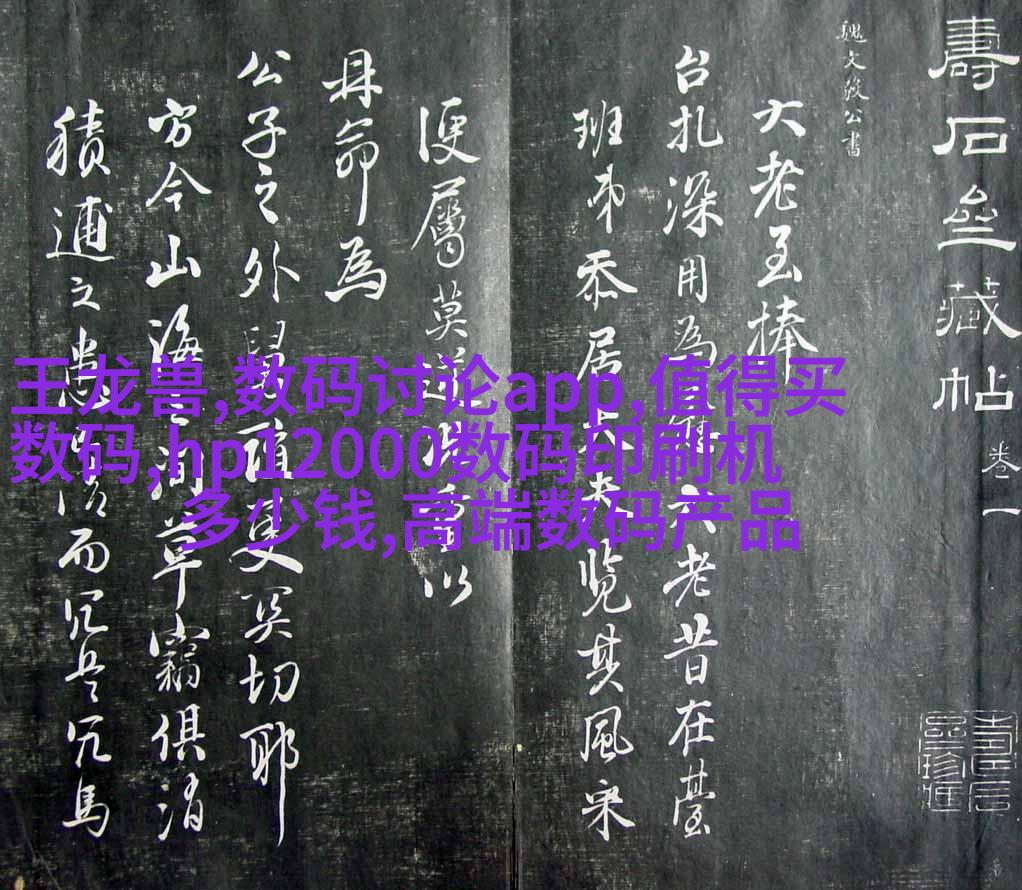 壽石亝藏帖 卷一
魏文毅公書
大老至捧
台扎深用為 大老昔在臺
班弟忝居 覽其風采
便屬莫 以
命為
公子之外 更奚切耶
方今山海 草竊俱消
積逋之患 而冗兵冗馬
王龙兽,数码讨论app,值得买
数码,hp12000数码印刷机
多少钱,高端数码产品